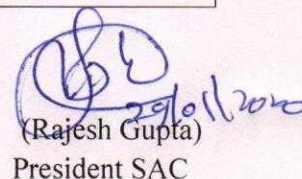 29/01/2020
(Rajesh Gupta)
President SAC